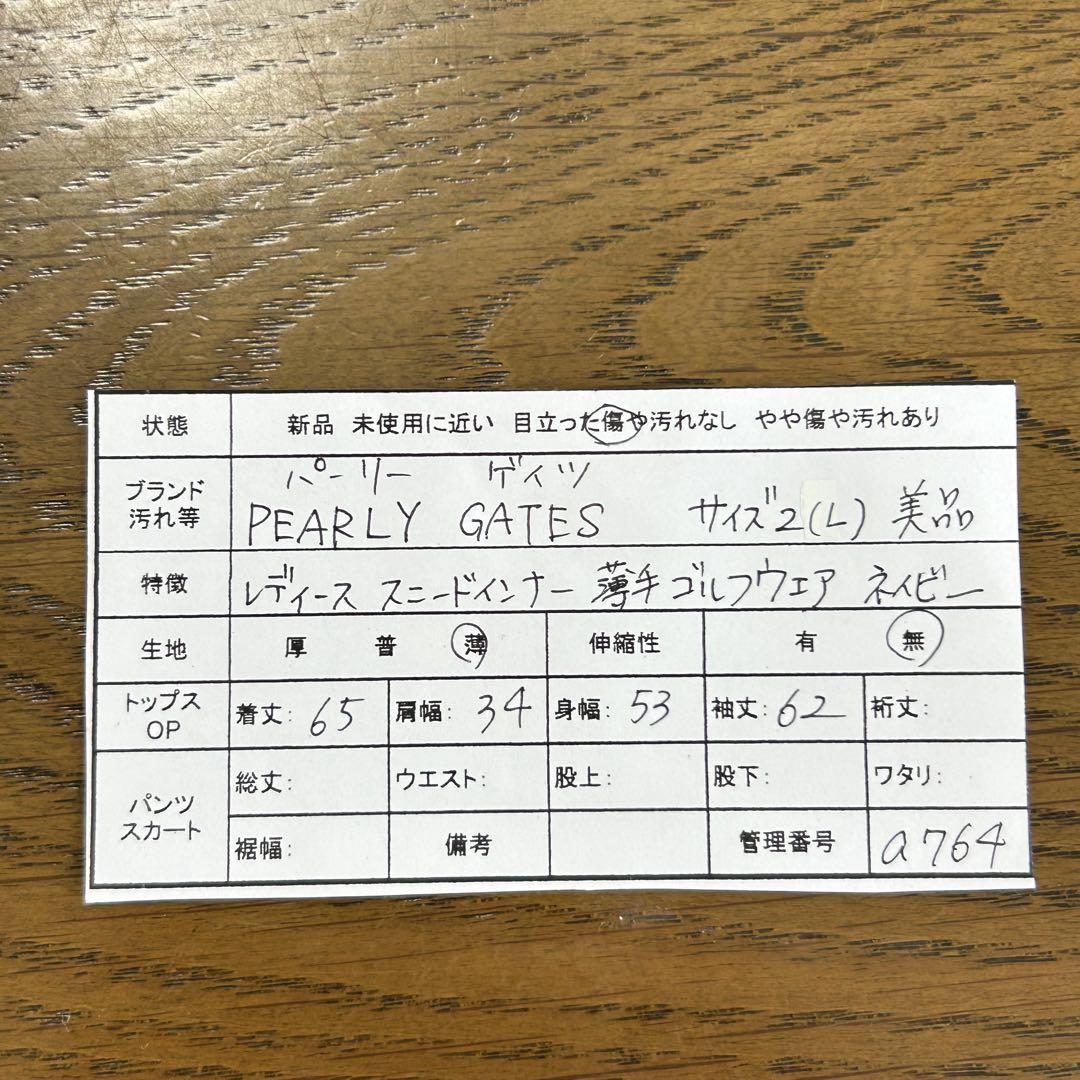 状態 新品 未使用に近い 目立った傷や汚れなし やや傷や汚れあり
パーリー ゲイツ
ブランド 汚れ等 PEARLY GATES サイズ2(L) 美品
特徴 レディース スニードインナー 薄手 ゴルフウェア ネイビー
生地 厚 普 薄 伸縮性 有 無
トップス OP 着丈: 65 肩幅: 34 身幅: 53 袖丈: 62 裄丈:
パンツ スカート 総丈: ウエスト: 股上: 股下: ワタリ:
裾幅: 備考 管理番号 a764